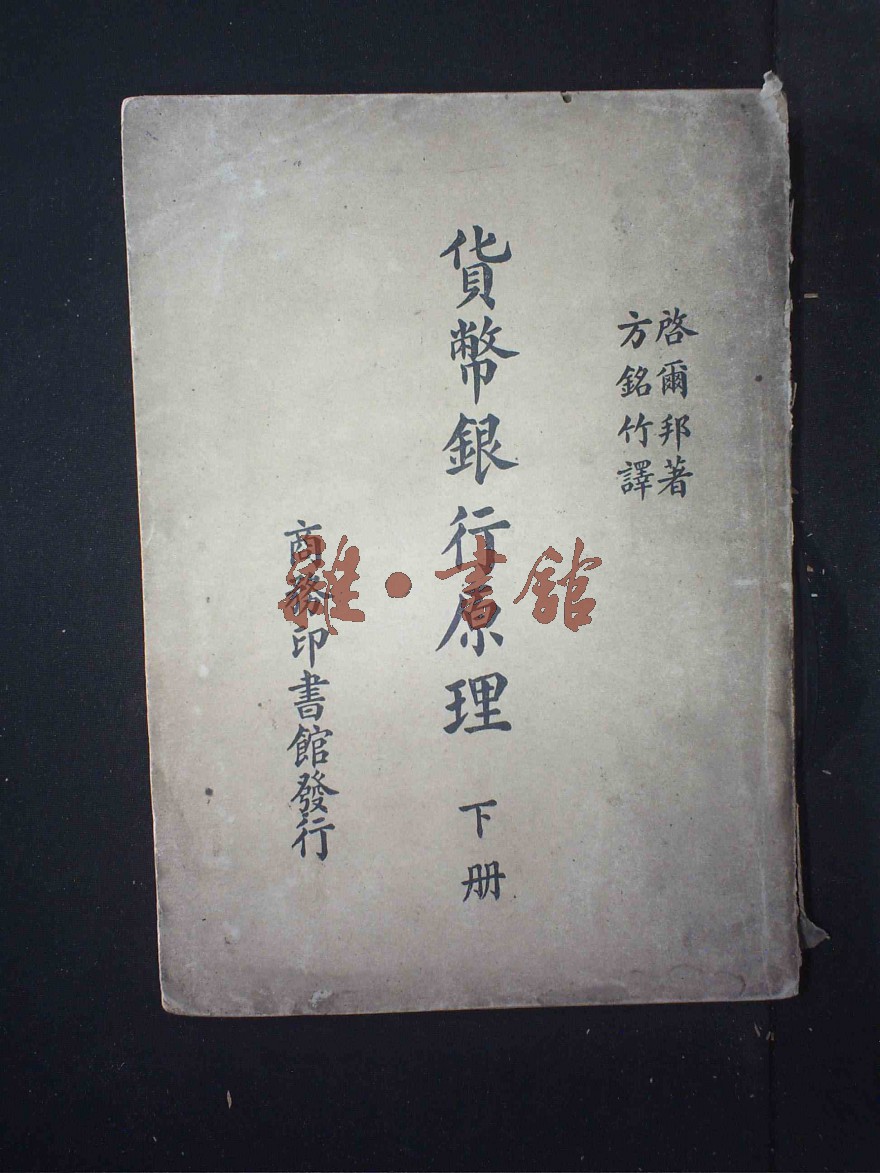 啓爾邦著
方銘竹譯
貨幣銀行原理 下册
商務印書館發行
雜·書館